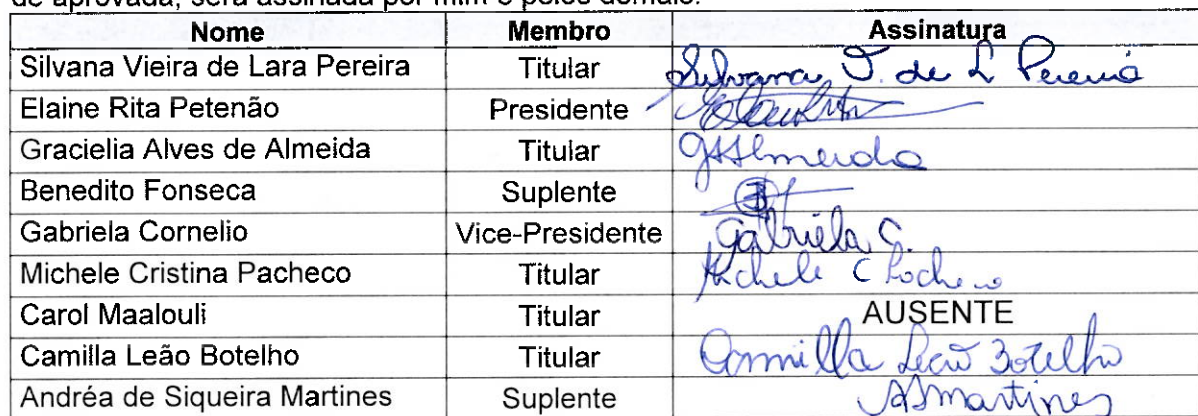 de aprovada, será assinada por mim e pelos demais.
Nome Membro Assinatura
Silvana Vieira de Lara Pereira Titular Silvana V. de L Pereira
Elaine Rita Petenão Presidente
Gracielia Alves de Almeida Titular GAAlmeida
Benedito Fonseca Suplente
Gabriela Cornelio Vice-Presidente Gabriela C.
Michele Cristina Pacheco Titular Michele C Pacheco
Carol Maalouli Titular AUSENTE
Camilla Leão Botelho Titular Camilla Leão Botelho
Andréa de Siqueira Martines Suplente ASmartines